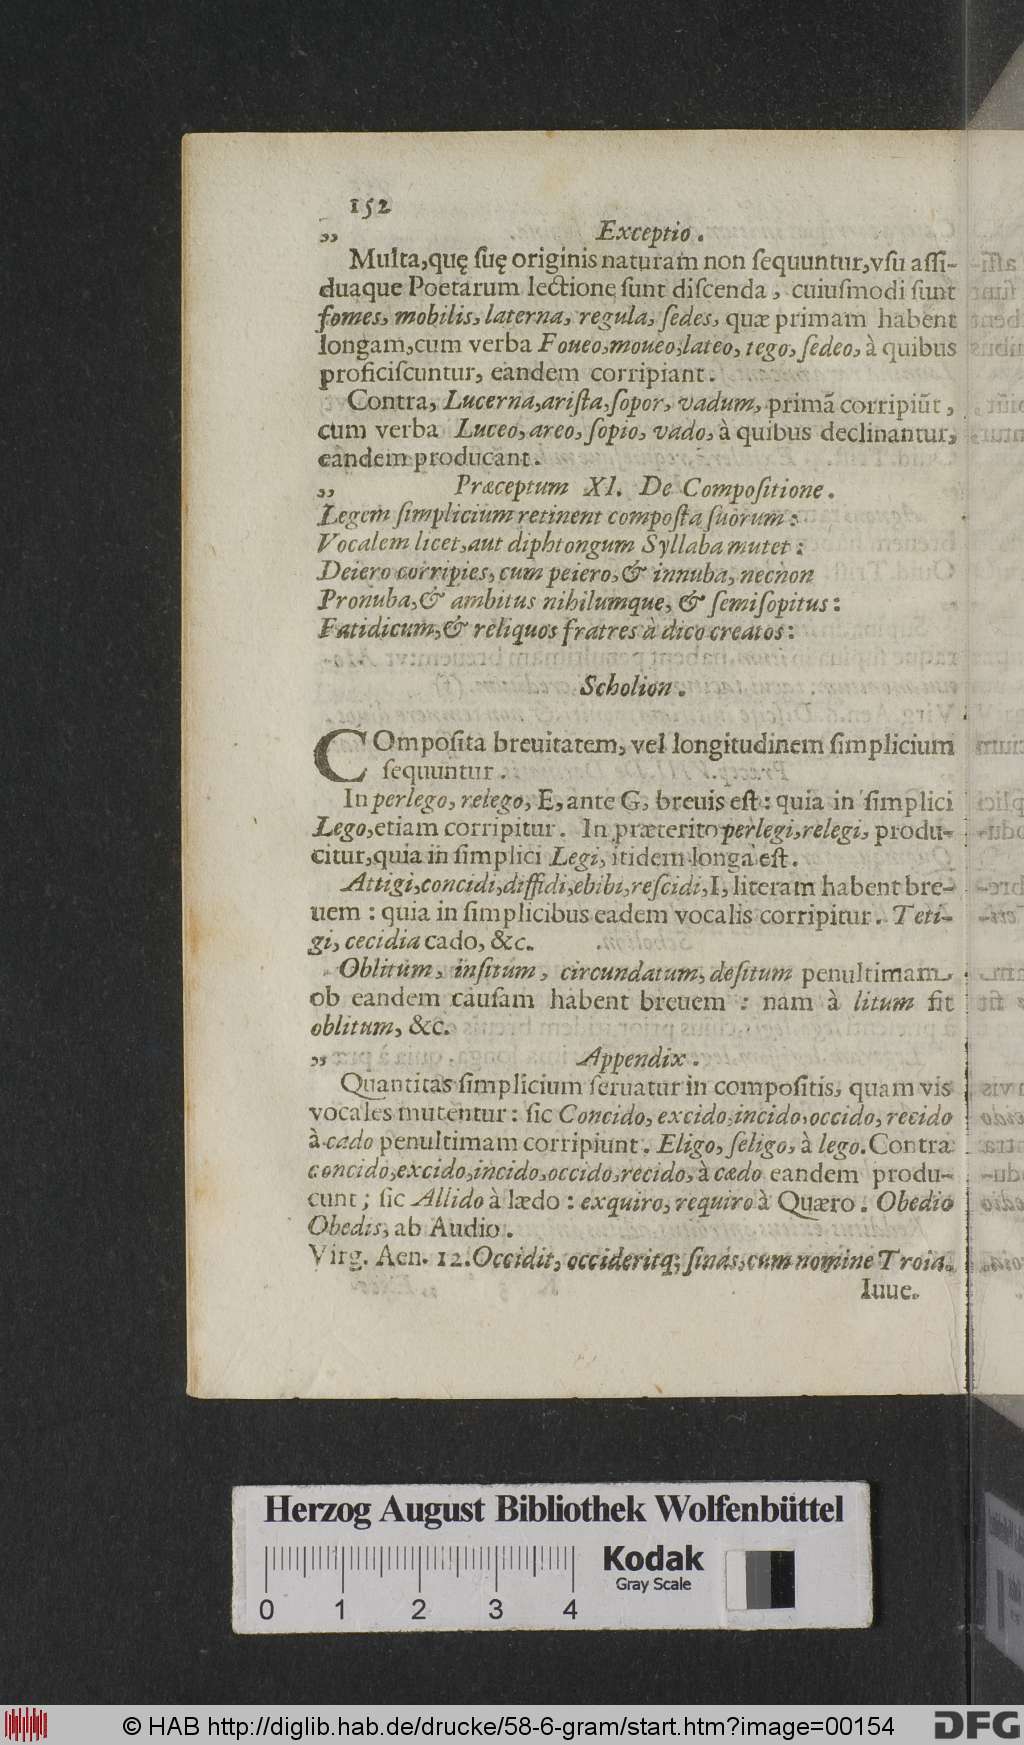 152
„ Exceptio.
Multa, quę suę originis naturam non sequuntur, vsu assi-
duaque Poetarum lectione sunt discenda, cuiusmodi sunt
fomes, mobilis, laterna, regula, sedes, quæ primam habent
longam, cum verba Foueo, moueo, lateo, tego, sedeo, à quibus
proficiscuntur, eandem corripiant.
Contra, Lucerna, arista, sopor, vadum, primã corripiũt,
cum verba Luceo, areo, sopio, vado, à quibus declinantur,
eandem producant.
„ Præceptum XI. De Compositione.
Legem simplicium retinent composta suorum:
Vocalem licet, aut diphtongum Syllaba mutet:
Deiero corripies, cum peiero, & innuba, necnon
Pronuba, & ambitus nihilumque, & semisopitus:
Fatidicum, & reliquos fratres à dico creatos:
Scholion.
COmposita breuitatem, vel longitudinem simplicium
sequuntur.
In perlego, relego, E, ante G, breuis est: quia in simplici
Lego, etiam corripitur. In præterito perlegi, relegi, produ-
citur, quia in simplici Legi, itidem longa est.
Attigi, concidi, diffidi, ebibi, rescidi, I, literam habent bre-
uem: quia in simplicibus eadem vocalis corripitur. Teti-
gi, cecidi a cado, &c.
Oblitum, insitum, circundatum, desitum penultimam
ob eandem causam habent breuem: nam à litum fit
oblitum, &c.
„ Appendix.
Quantitas simplicium seruatur in compositis, quam vis
vocales mutentur: sic Concido, excido, incido, occido, recido
à cado penultimam corripiunt. Eligo, seligo, à lego. Contra
concido, excido, incido, occido, recido, à cædo eandem produ-
cunt; sic Allido à lædo: exquiro, requiro à Quæro. Obedio
Obedis, ab Audio.
Virg. Aen. 12. Occidit, occideritq; sinas, cum nomine Troia.
Iuue.
Herzog August Bibliothek Wolfenbüttel
Kodak
Gray Scale
0 1 2 3 4
© HAB http://diglib.hab.de/drucke/58-6-gram/start.htm?image=00154
DFG